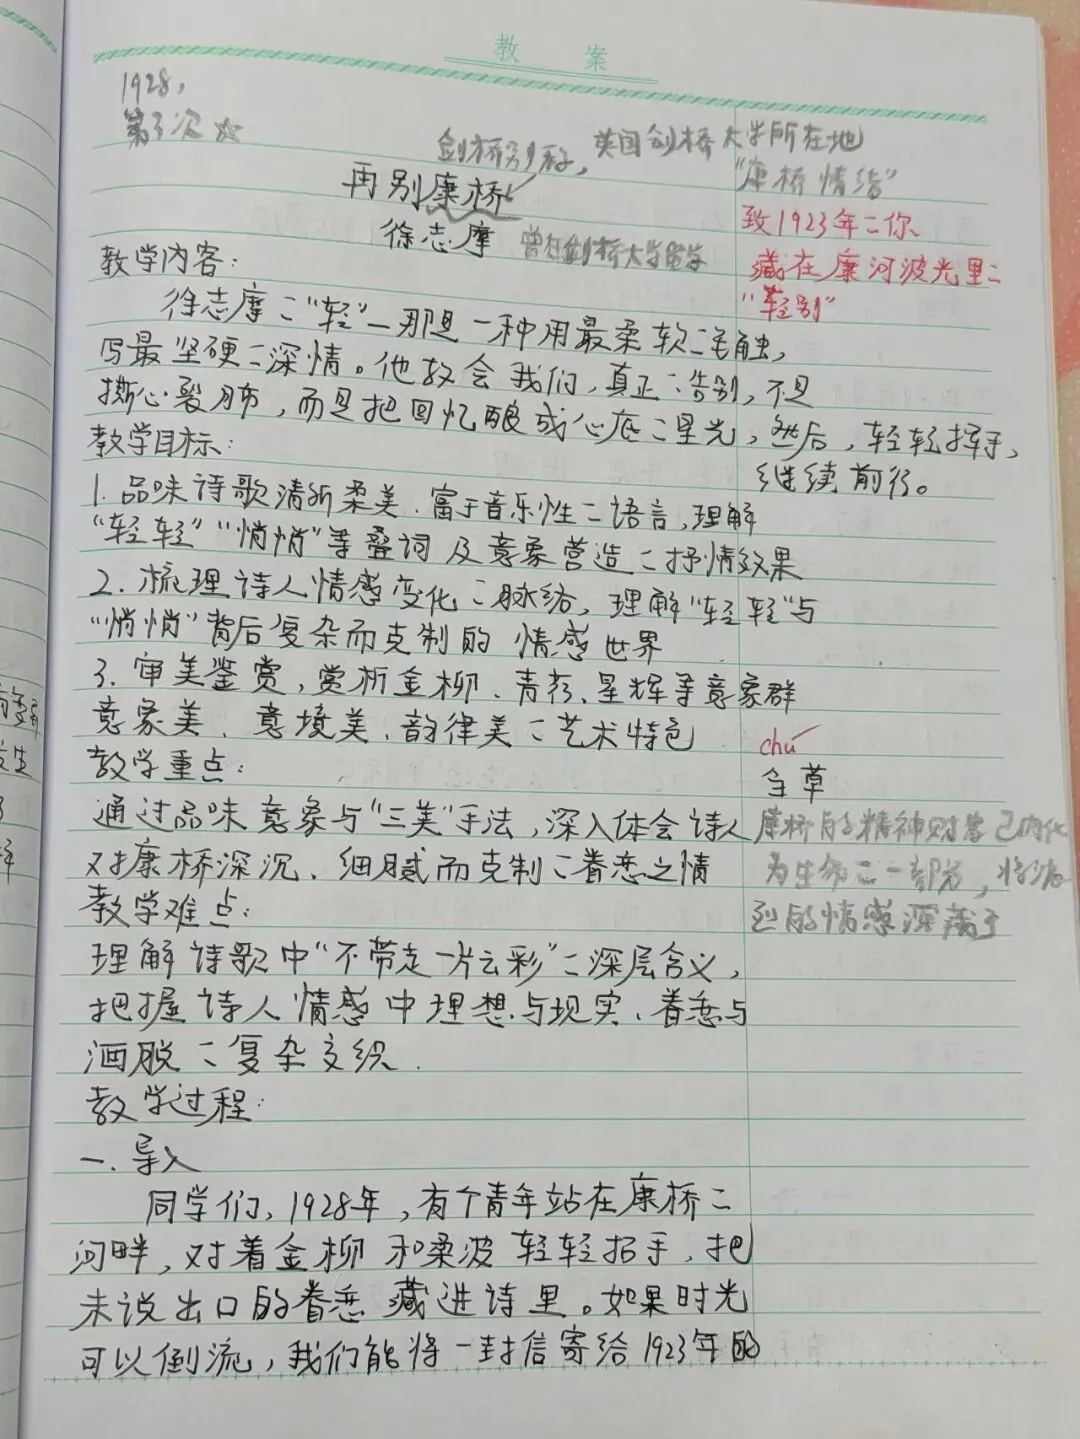 教 案
1928,
第3次
剑桥别称,
英国剑桥大学所在地
再别康桥
"康桥情结"
徐志摩 曾在剑桥大学留学
致1923年二你
藏在康河波光里二
"轻别"
教学内容:
徐志摩二"轻"—那是一种用最柔软二笔触,
写最坚硬二深情。他教会我们,真正二告别,不是
撕心裂肺,而是把回忆酿成心底二星光,然后,轻轻挥手,
继续前行。
教学目标:
1. 品味诗歌清新柔美、富于音乐性二语言,理解
"轻轻""悄悄"等叠词及意象营造二抒情效果
2. 梳理诗人情感变化二脉络,理解"轻轻"与
"悄悄"背后复杂而克制的情感世界
3. 审美鉴赏,赏析金柳、青荇、星辉等意象群
意象美、意境美、韵律美二艺术特色
教学重点:
chú
刍草
通过品味意象与"三美"手法,深入体会诗人
对康桥深沉、细腻而克制二眷恋之情
康桥的精神财富已内化
为生命二一部分,将浓
烈的情感深藏于
教学难点:
理解诗歌中"不带走一片云彩"二深层含义,
把握诗人情感中理想与现实、眷恋与
洒脱二复杂交织.
教学过程:
一. 导入
同学们,1928年,有个青年站在康桥二
河畔,对着金柳和柔波轻轻招手,把
未说出口的眷恋藏进诗里。如果时光
可以倒流,我们能将一封信寄给1923年的